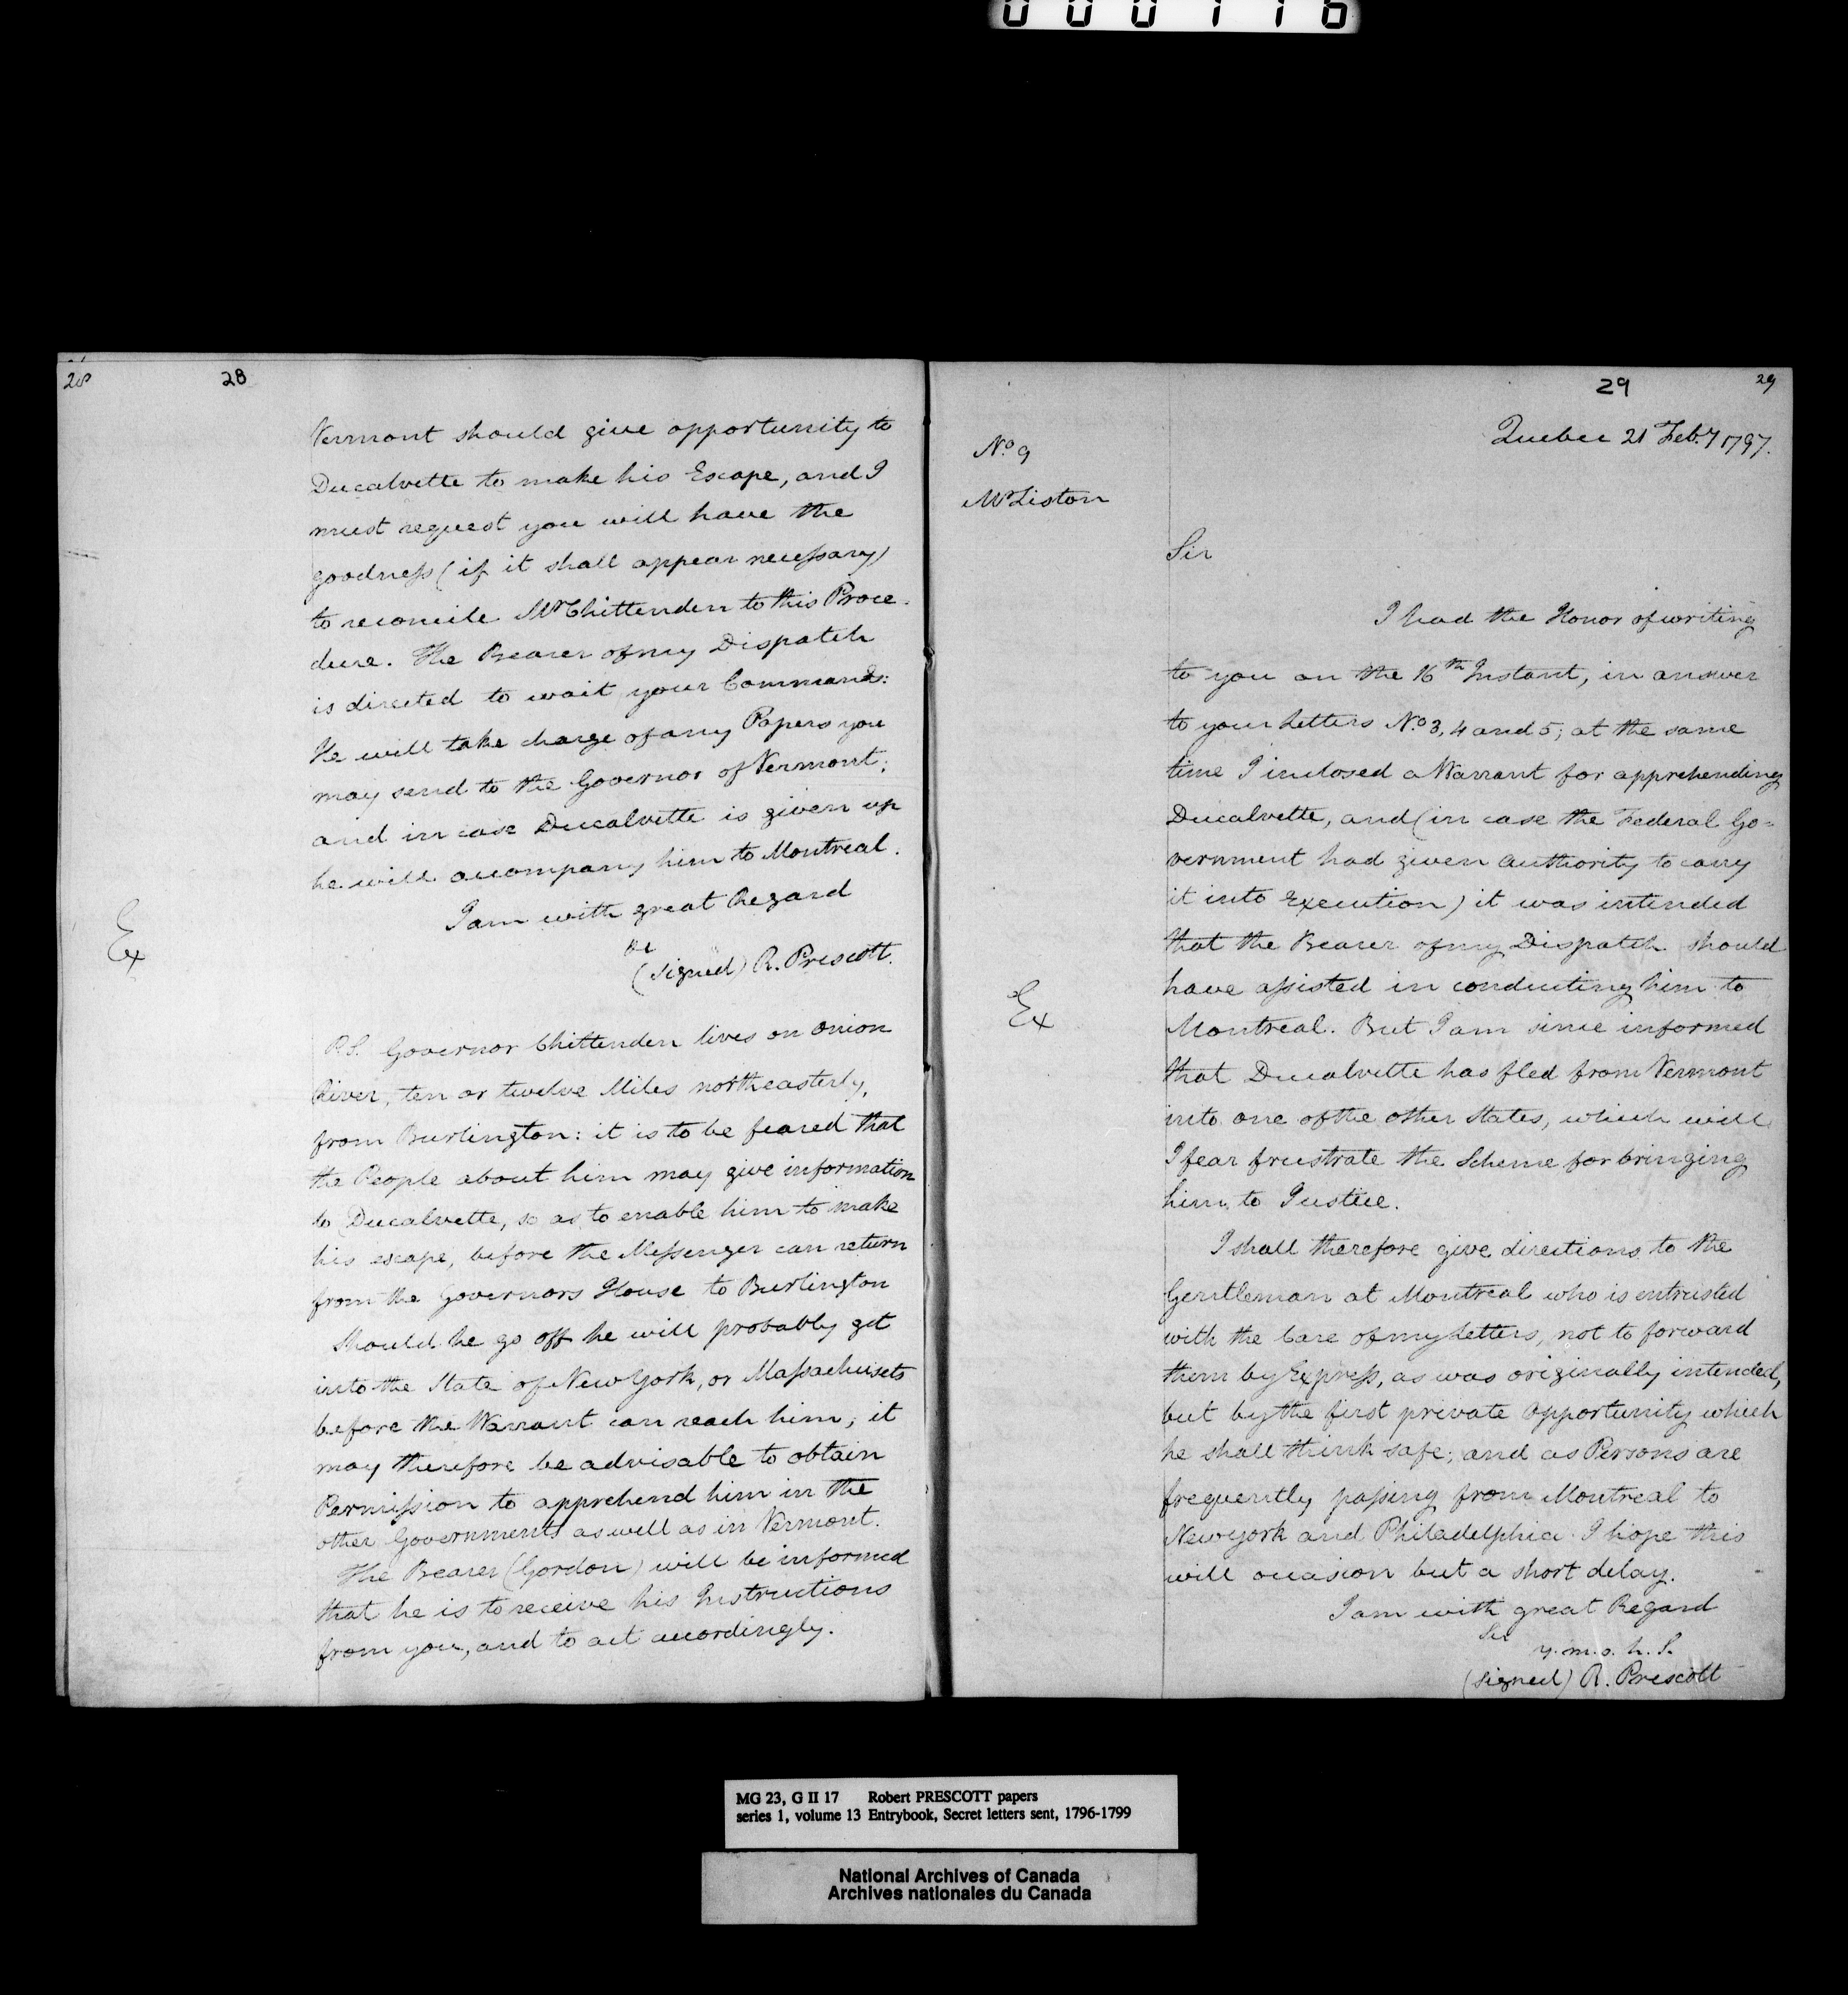 000116
28 28
Vermont should give opportunity to
Ducalvette to make his Escape, and I
must request you will have the
goodness (if it shall appear necessary)
to reconcile Mr Chittenden to this Proce-
dure. The Bearer of my Dispatch
is directed to wait your Commands:
He will take charge of any Papers you
may send to the Governor of Vermont;
and in case Ducalvette is given up
he will accompany him to Montreal.
I am with great Regard
&c
(signed) R. Prescott.
Ex
P.S. Governor Chittenden lives on Onion
River, ten or twelve Miles northeasterly,
from Burlington: it is to be feared that
the People about him may give information
to Ducalvette, so as to enable him to make
his escape, before the Messenger can return
from the Governors House to Burlington
Should he go off he will probably get
into the State of New York, or Massachusets
before the Warrant can reach him; it
may therefore be advisable to obtain
Permission to apprehend him in the
other Governments as well as in Vermont.
The Bearer (Gordon) will be informed
that he is to receive his Instructions
from you, and to act accordingly.
29 29
Quebec 21 Feb.y 1797.
No. 9
Mr Liston
Sir
I had the Honor of writing
to you on the 16th Instant, in answer
to your Letters No. 3, 4 and 5; at the same
time I inclosed a Warrant for apprehending
Ducalvette, and (in case the Federal Go=
vernment had given authority to carry
it into Execution) it was intended
that the Bearer of my Dispatch should
have assisted in conducting him to
Montreal. But I am since informed
that Ducalvette has fled from Vermont
into one of the other States, which will
I fear frustrate the Scheme for bringing
him to Justice.
Ex
I shall therefore give directions to the
Gentleman at Montreal who is entrusted
with the Care of my Letters, not to forward
them by Express, as was originally intended,
but by the first private opportunity which
he shall think safe; and as Persons are
frequently passing from Montreal to
New york and Philadelphia I hope this
will occasion but a short delay.
I am with great Regard
Sir
y. m. o. h. S.
(signed) R. Prescott
MG 23, G II 17 Robert PRESCOTT papers
series 1, volume 13 Entrybook, Secret letters sent, 1796-1799
National Archives of Canada
Archives nationales du Canada